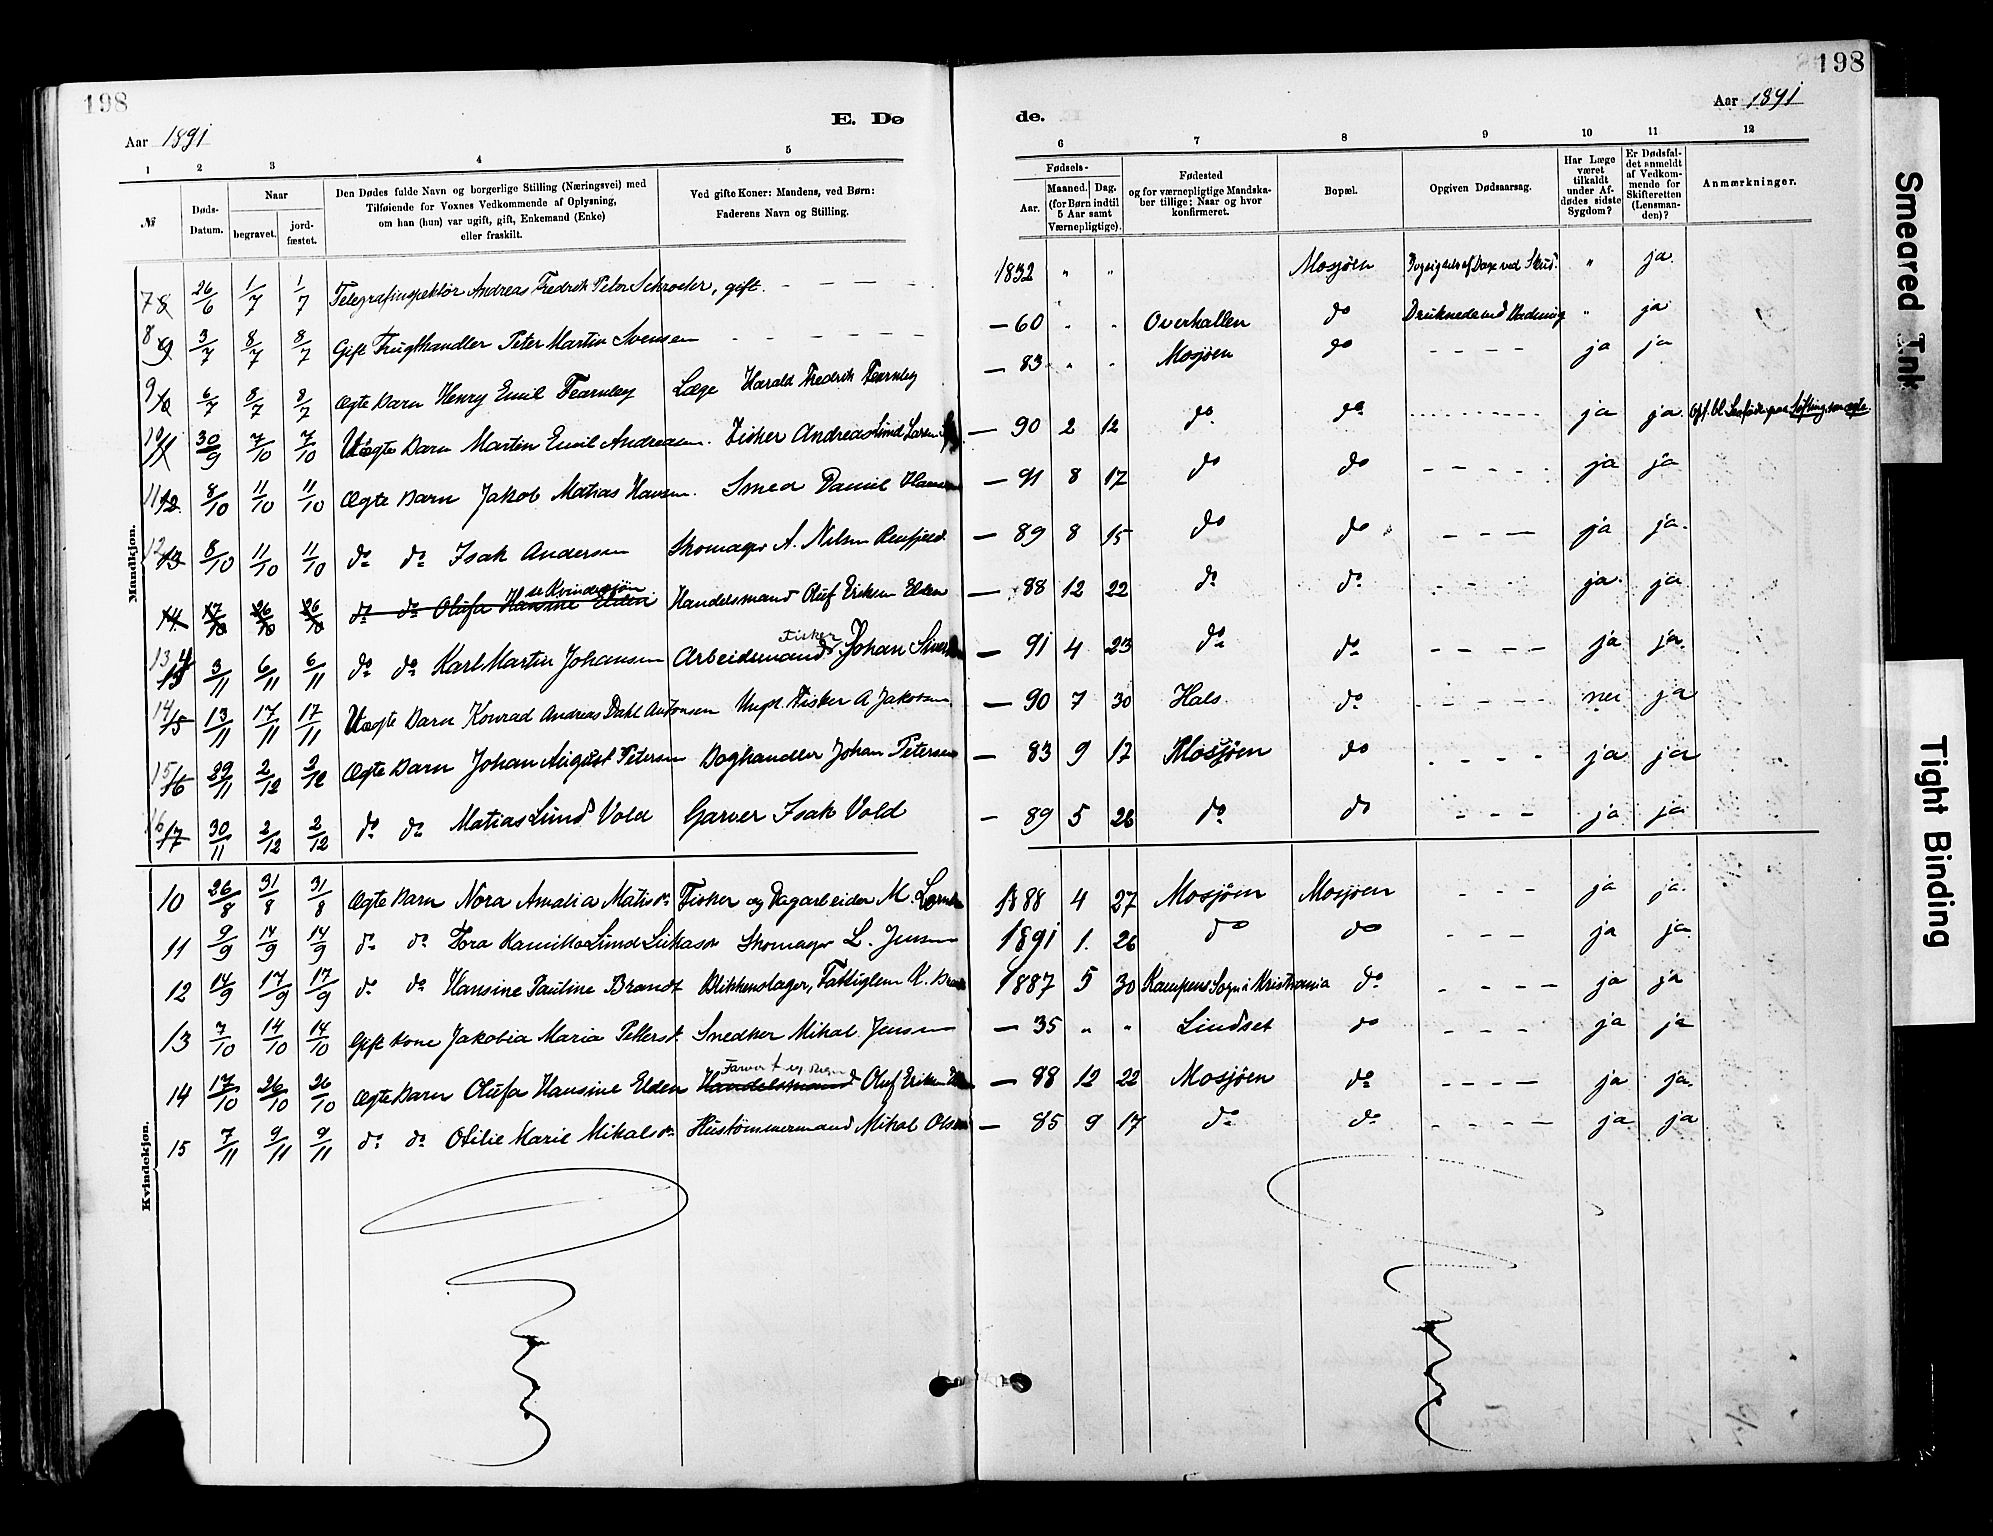 198
198
Aar 1891
E. Dø
de.
Aar 1891
1 2 3 4 5 6 7 8 9 10 11 12
№
Døds-Datum.
Naar
begravet.
jord-fæstet.
Den Dødes fulde Navn og borgerlige Stilling (Næringsvei) med
Tilføiende for Voxnes Vedkommende af Oplysning,
om han (hun) var ugift, gift, Enkemand (Enke)
eller fraskilt.
Ved gifte Koner: Mandens, ved Børn:
Faderens Navn og Stilling.
Fødsels-
Aar.
Maaned. Dag.
(for Børn indtil
5 Aar samt
Værnepligtige).
Fødested
og for værnepligtige Mandska-
ber tillige: Naar og hvor
konfirmeret.
Bopæl.
Opgiven Dødsaarsag.
Har Læge
været
tilkaldt
under Af-
dødes sidste
Sygdom?
Er Dødsfal-
det anmeldt
af Vedkom-
mende for
Skifteretten
(Lensman-
den)?
Anmærkninger.
Mandkjøn.
7 8 26/6 1/7 1/7 Telegrafinspektør Andreas Fredrik Peter Schroeter, gift. - - - - 1832 " " Mosjøen af Daxe ved Skud. " ja.
8 9 3/7 8/7 8/7 Gift Frugthandler Peter Martin Svensen - - - - - 60 " " Overhallen do Druknede ved Badning " ja
9 10 6/7 8/7 8/7 Ægte Barn Henry Emil Fearnley Læge Harald Fredrik Fearnley - 83 " " Mosjøen do - - - - ja ja
10 11 30/9 7/10 7/10 Uægte Barn Martin Emil Andreasen. Fisker Andreas Lund - 90 2 12 do do ja ja.
11 12 8/10 11/10 11/10 Ægte Barn Jakob Matias Hansen. Smed Daniel - 91 8 17 do do - - - - ja ja
12 13 8/10 11/10 11/10 do do Isak Andersen Skomager A. Nilsen Renfjeld. - 89 8 15 do do - - - - ja ja.
14 17/10 26/10 26/10 do do Olufa Hansine Elden se Kvindekjøn Handelsmand Oluf Eriken Elden - 88 12 22 do do - - - - ja ja
13 14 15 3/11 6/11 6/11 do do Karl Martin Johansen Arbeidsmand Fisker Johan - 91 4 23 do do - - - - ja ja.
14 15 13/11 17/11 17/11 Uægte Barn Konrad Andreas Dahl Antonsen Ungk. Fisker A Jakobsen - 90 7 30 Hals do - - - - nei ja
15 16 29/11 2/12 2/12 Ægte Barn Johan August Petersen Boghandler Johan Petersen - 83 9 17 Mosjøen do - - - - ja ja
16 17 30/11 2/12 2/12 do do Matias Lund Vold Garver Isak Vold - 89 5 26 do do - - - - ja ja
Kvindekjøn.
10 26/8 31/8 31/8 Ægte Barn Nora Amalia Matisdr Fisker og Dagarbeider M. 1888 4 27 Mosjøen Mosjøen - - - ja ja.
11 9/9 14/9 14/9 do do Tora Kamilla Lund Skomager L. Jensen 1891 1. 26 do do - - - ja ja.
12 14/9 17/9 17/9 do do Hansine Pauline Brandt Blikkenslager, Fattiglem 1887 5 30 Kampens Sogn i Kristiania do - - - - ja ja
13 7/10 14/10 14/10 Gift Kone Jakobia Maria Pettersd. Snedker Mikal Jensen - 35 " " Lindset do - - - ja ja
14 17/10 26/10 26/10 Ægte Barn Olufa Hansine Elden Handelsmand Farver Oluf Eriken - 88 12 22 Mosjøen do - - - - ja ja.
15 7/11 9/11 9/11 do do Otilie Marie Mikalsdr Hustømmermand Mikal Olsen - 85 9 17 do do - - - - ja ja
Smeared Ink
Tight Binding